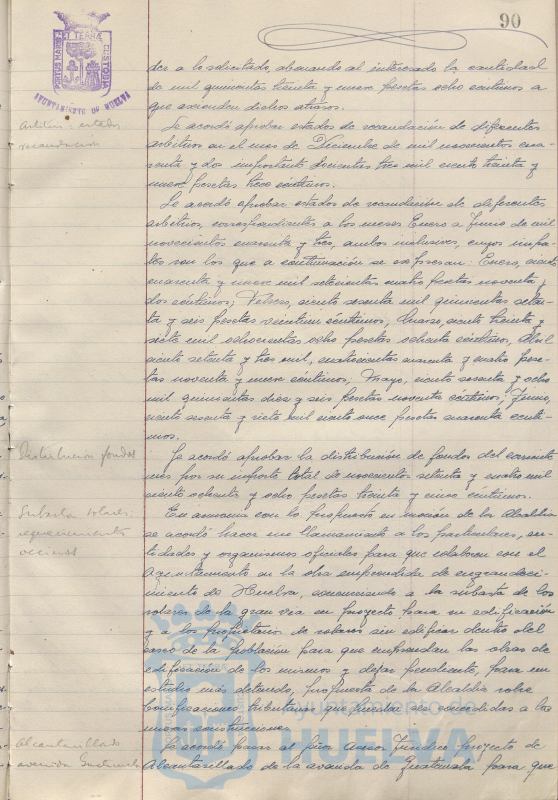 90
PORTUS MARIS ET TERRAE CUSTODIA
AYUNTAMIENTO DE HUELVA
der a lo solicitado, abonando al interesado la cantidad
de mil quinientas treinta y nueve pesetas ocho céntimos a
que ascienden dichos atrasos.
Arbitrios: estados
recaudacion
Se acordó aprobar estados de recaudación de diferentes
arbitrios en el mes de Diciembre de mil novecientos cua-
renta y dos importante doscientas tres mil ciento treinta y
nueve pesetas trece céntimos.
Se acordó aprobar estados de recaudación de diferentes
arbitrios, correspondientes a los meses Enero a Junio de mil
novecientos cuarenta y tres, ambos inclusives, cuyos impor-
tes son los que a continuación se expresan: Enero, ciento
cuarenta y nueve mil setecientas cuatro pesetas noventa y
dos céntimos; Febrero, ciento sesenta mil quinientas seten-
ta y seis pesetas veintiun céntimos; Marzo, ciento treinta y
siete mil ochocientas ocho pesetas ochenta céntimos; Abril
ciento setenta y tres mil, cuatrocientas cuarenta y cuatro pese-
tas noventa y nueve céntimos; Mayo, ciento sesenta y ocho
mil quinientas diez y seis pesetas noventa céntimos; Junio,
ciento sesenta y siete mil ciento once pesetas cuarenta cénti-
mos.
Distribucion fondos
Se acordó aprobar la distribución de fondos del corriente
mes por su importe total de novecientas setenta y cuatro mil
ciento ochenta y ocho pesetas treinta y cinco céntimos.
Subasta solares:
requerimiento
vecinos
En armonía con lo propuesto en moción de la Alcaldía
se acordó hacer un llamamiento a los particulares, en-
tidades y organismos oficiales para que colaboren con el
Ayuntamiento en la obra emprendida de engrandeci-
miento de Huelva, concurriendo a la subasta de los
solares de la gran vía en proyecto para su edificación
y a los propietarios de solares sin edificar dentro del
casco de la población para que emprendan las obras de
edificación de los mismos y dejar pendiente, para un
estudio más detenido, propuesta de la Alcaldía sobre
bonificaciones tributarias que puedan ser concedidas a las
nuevas construcciones.
Alcantarillado
avenida Guatemala
Se acordó pasar al Señor Asesor Jurídico proyecto de
Alcantarillado de la avenida de Guatemala para que
Ayuntamiento de
HUELVA